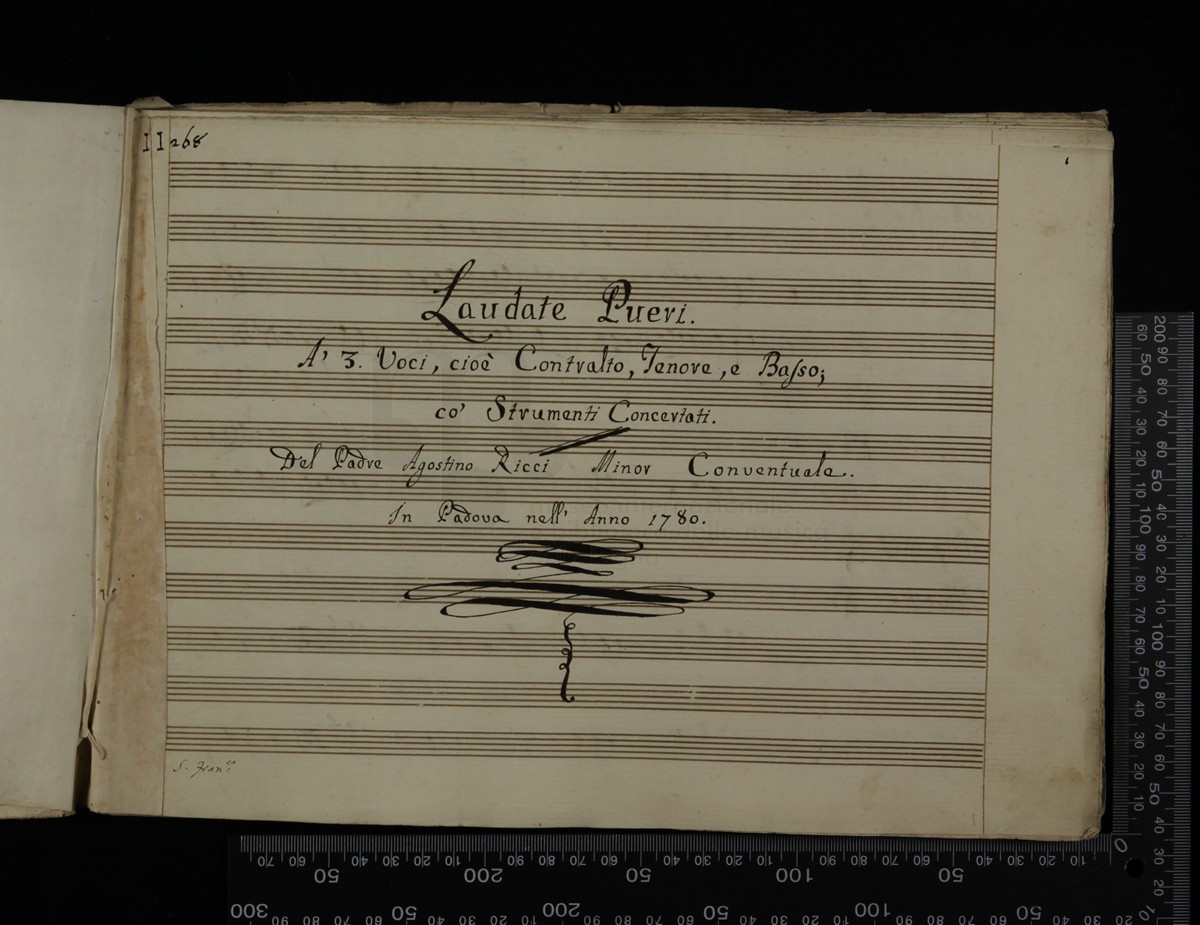 II 268
1
Laudate Pueri.
A' 3. Voci, cioè Contralto, Tenore, e Baſso;
co' Strumenti Concertati.
Del Padre Agostino Ricci Minor Conventuale.
In Padova nell' Anno 1780.
S. Fran.co